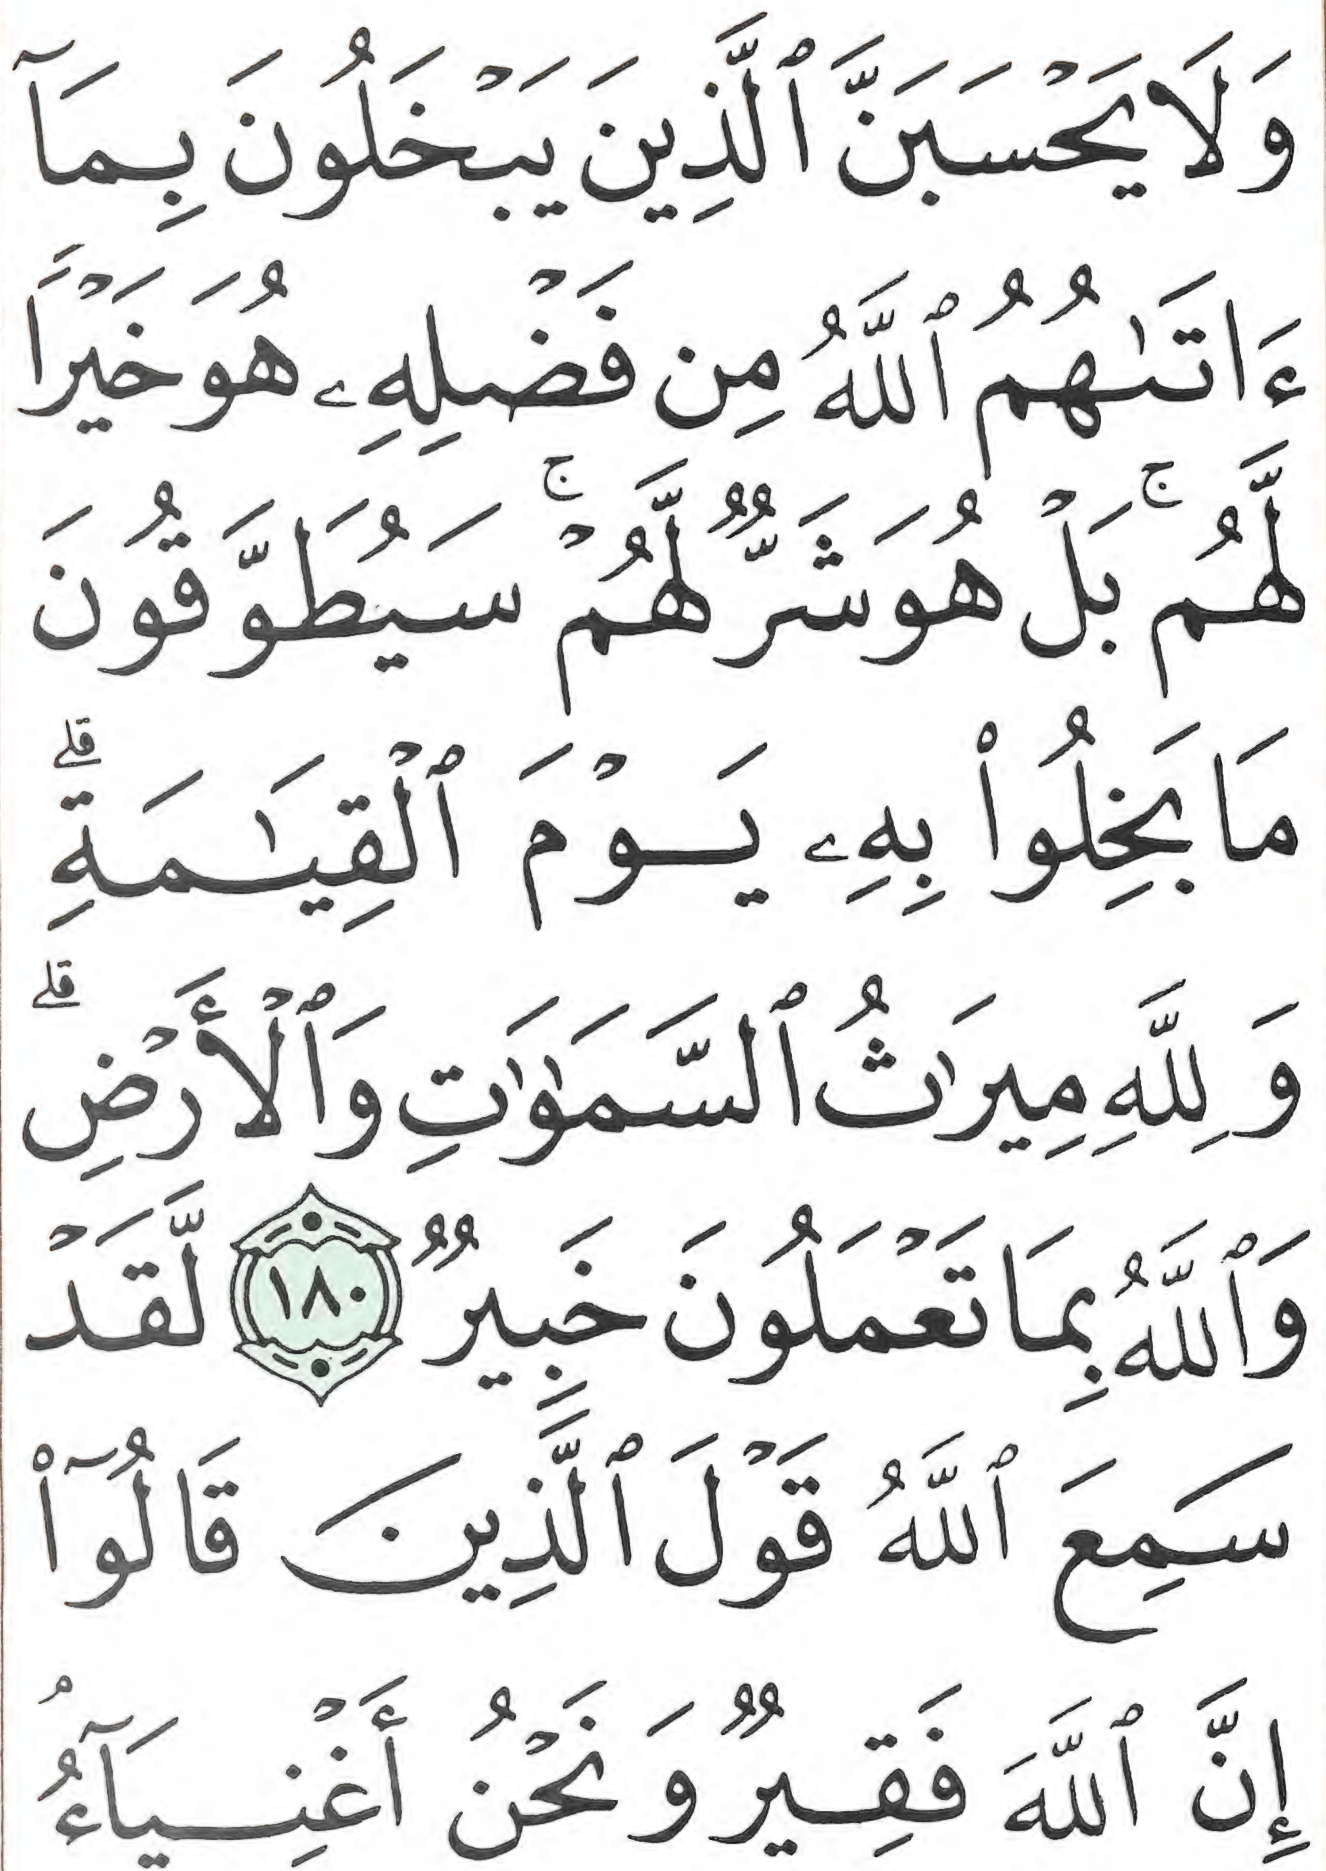 وَلَا يَحْسَبَنَّ ٱلَّذِينَ يَبْخَلُونَ بِمَآ
ءَاتَىٰهُمُ ٱللَّهُ مِن فَضْلِهِۦ هُوَ خَيْرًا
لَّهُم ۚ بَلْ هُوَ شَرٌّ لَّهُمْ ۚ سَيُطَوَّقُونَ
مَا بَخِلُوا۟ بِهِۦ يَوْمَ ٱلْقِيَـٰمَةِ ۗ
وَلِلَّهِ مِيرَٰثُ ٱلسَّمَـٰوَٰتِ وَٱلْأَرْضِ ۗ
وَٱللَّهُ بِمَا تَعْمَلُونَ خَبِيرٌ ١٨٠ لَّقَدْ
سَمِعَ ٱللَّهُ قَوْلَ ٱلَّذِينَ قَالُوٓا۟
إِنَّ ٱللَّهَ فَقِيرٌ وَنَحْنُ أَغْنِيَآءُ ۘ